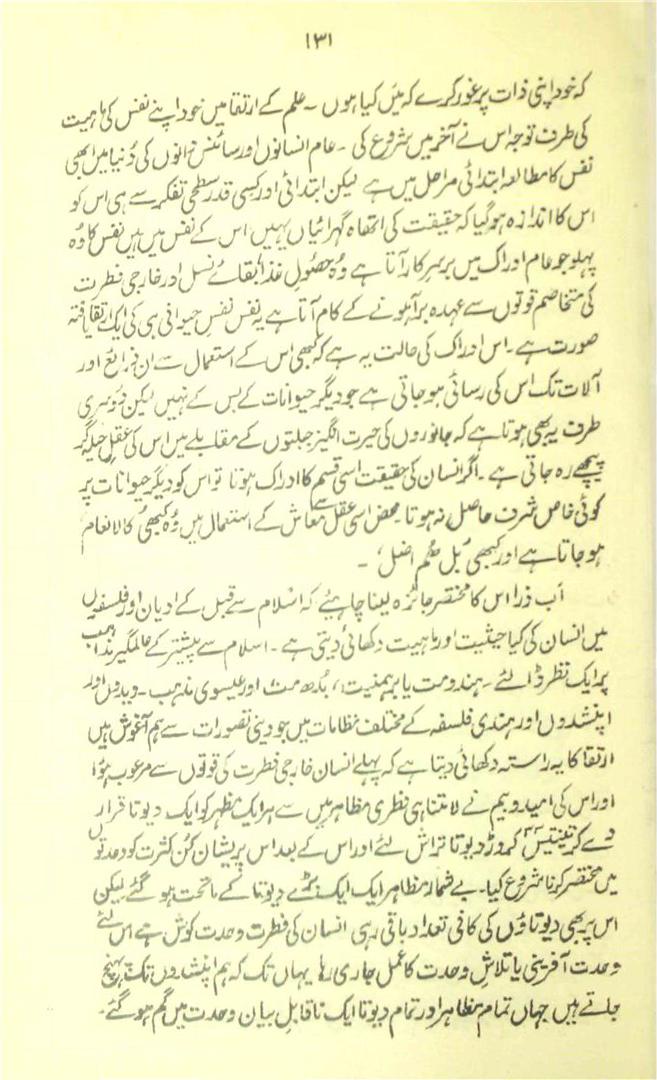 ۱۳۱
کہ خود اپنی ذات پر غور کرے کہ میں کیا ہوں ۔ علم کے ارتقا میں خود اپنے نفس کی ماہیت
کی طرف توجہ اس نے آخر میں شروع کی ۔ عام انسانوں اور سائنس دانوں کی دُنیا میں ابھی
نفس کا مطالعہ ابتدائی مراحل میں ہے لیکن ابتدائی اور کسی قدر سطحی تفکر سے ہی اس کو
اس کا اندازہ ہو گیا کہ حقیقت کی اتھاہ گہرائیاں یہیں اس کے نفس میں ہیں نفس کا وُہ
پہلو جو عام ادراک میں برسرِ کار آتا ہے وُہ حصُولِ غذا بقائے نسل اور خارجی فطرت
کی متخاصم قوتوں سے عہدہ برآ ہونے کے کام آتا ہے یہ نفس نفسِ حیوانی ہی کی ایک ارتقا یافتہ
صورت ہے ۔ اس ادراک کی حالت یہ ہے کہ کبھی اس کے استعمال سے ان ذرائع اور
آلات تک اس کی رسائی ہو جاتی ہے جو دیگر حیوانات کے بس کے نہیں لیکن دُوسری
طرف یہ بھی ہوتا ہے کہ جانوروں کی حیرت انگیز جبلتوں کے مقابلے میں اس کی عقلِ حیلہ گر
پیچھے رہ جاتی ہے ۔ اگر انسان کی حقیقت اسی قسم کا ادراک ہوتا تو اس کو دیگر حیوانات پر
کوئی خاص شرف حاصل نہ ہوتا ۔ محض اسی عقلِ معاش کے استعمال میں وُہ کبھی کالانعام
ہو جاتا ہے اور کبھی ’بل ھُم اضل‘ ۔
اَب ذرا اس کا مختصر جائزہ لینا چاہیئے کہ اسلام سے قبل کے ادیان اور فلسفوں
میں انسان کی کیا حیثیت اور ماہیت دکھائی دیتی ہے ۔ اسلام سے پیشتر کے عالمگیر مذاہب
پر ایک نظر ڈالئے ۔ ہندومت یا برہمنیت ، بُدھ مت اور عیسوی مذہب ۔ ویدوں اور
اپنشدوں اور ہندی فلسفہ کے مختلف نظامات میں جو دینی تصورات سے ہم آغوش ہیں
ارتقا کا یہ راستہ دکھائی دیتا ہے کہ پہلے انسان خارجی فطرت کی قوتوں سے مرعوب ہوُا
اور اس کی امید و بیم نے لامتناہی فطری مظاہر میں سے ہر ایک مظہر کو ایک دیوتا قرار
دے کر تینتیس ۳۳ کروڑ دیوتا تراش لئے اور اس کے بعد اس پریشان کُن کثرت کو وحدتوں
میں مختصر کرنا شروع کیا ۔ بے شمار مظاہر ایک ایک بڑے دیوتا کے ماتحت ہو گئے لیکن
اس پر بھی دیوتاؤں کی کافی تعداد باقی رہی انسان کی فطرت وحدت کوش ہے اس لئے
وحدت آفرینی یا تلاشِ وحدت کا عمل جاری رہا یہاں تک کہ ہم اپنشدوں تک پہنچ
جاتے ہیں جہاں تمام مظاہر اور تمام دیوتا ایک ناقابلِ بیان وحدت میں گم ہو گئے ۔